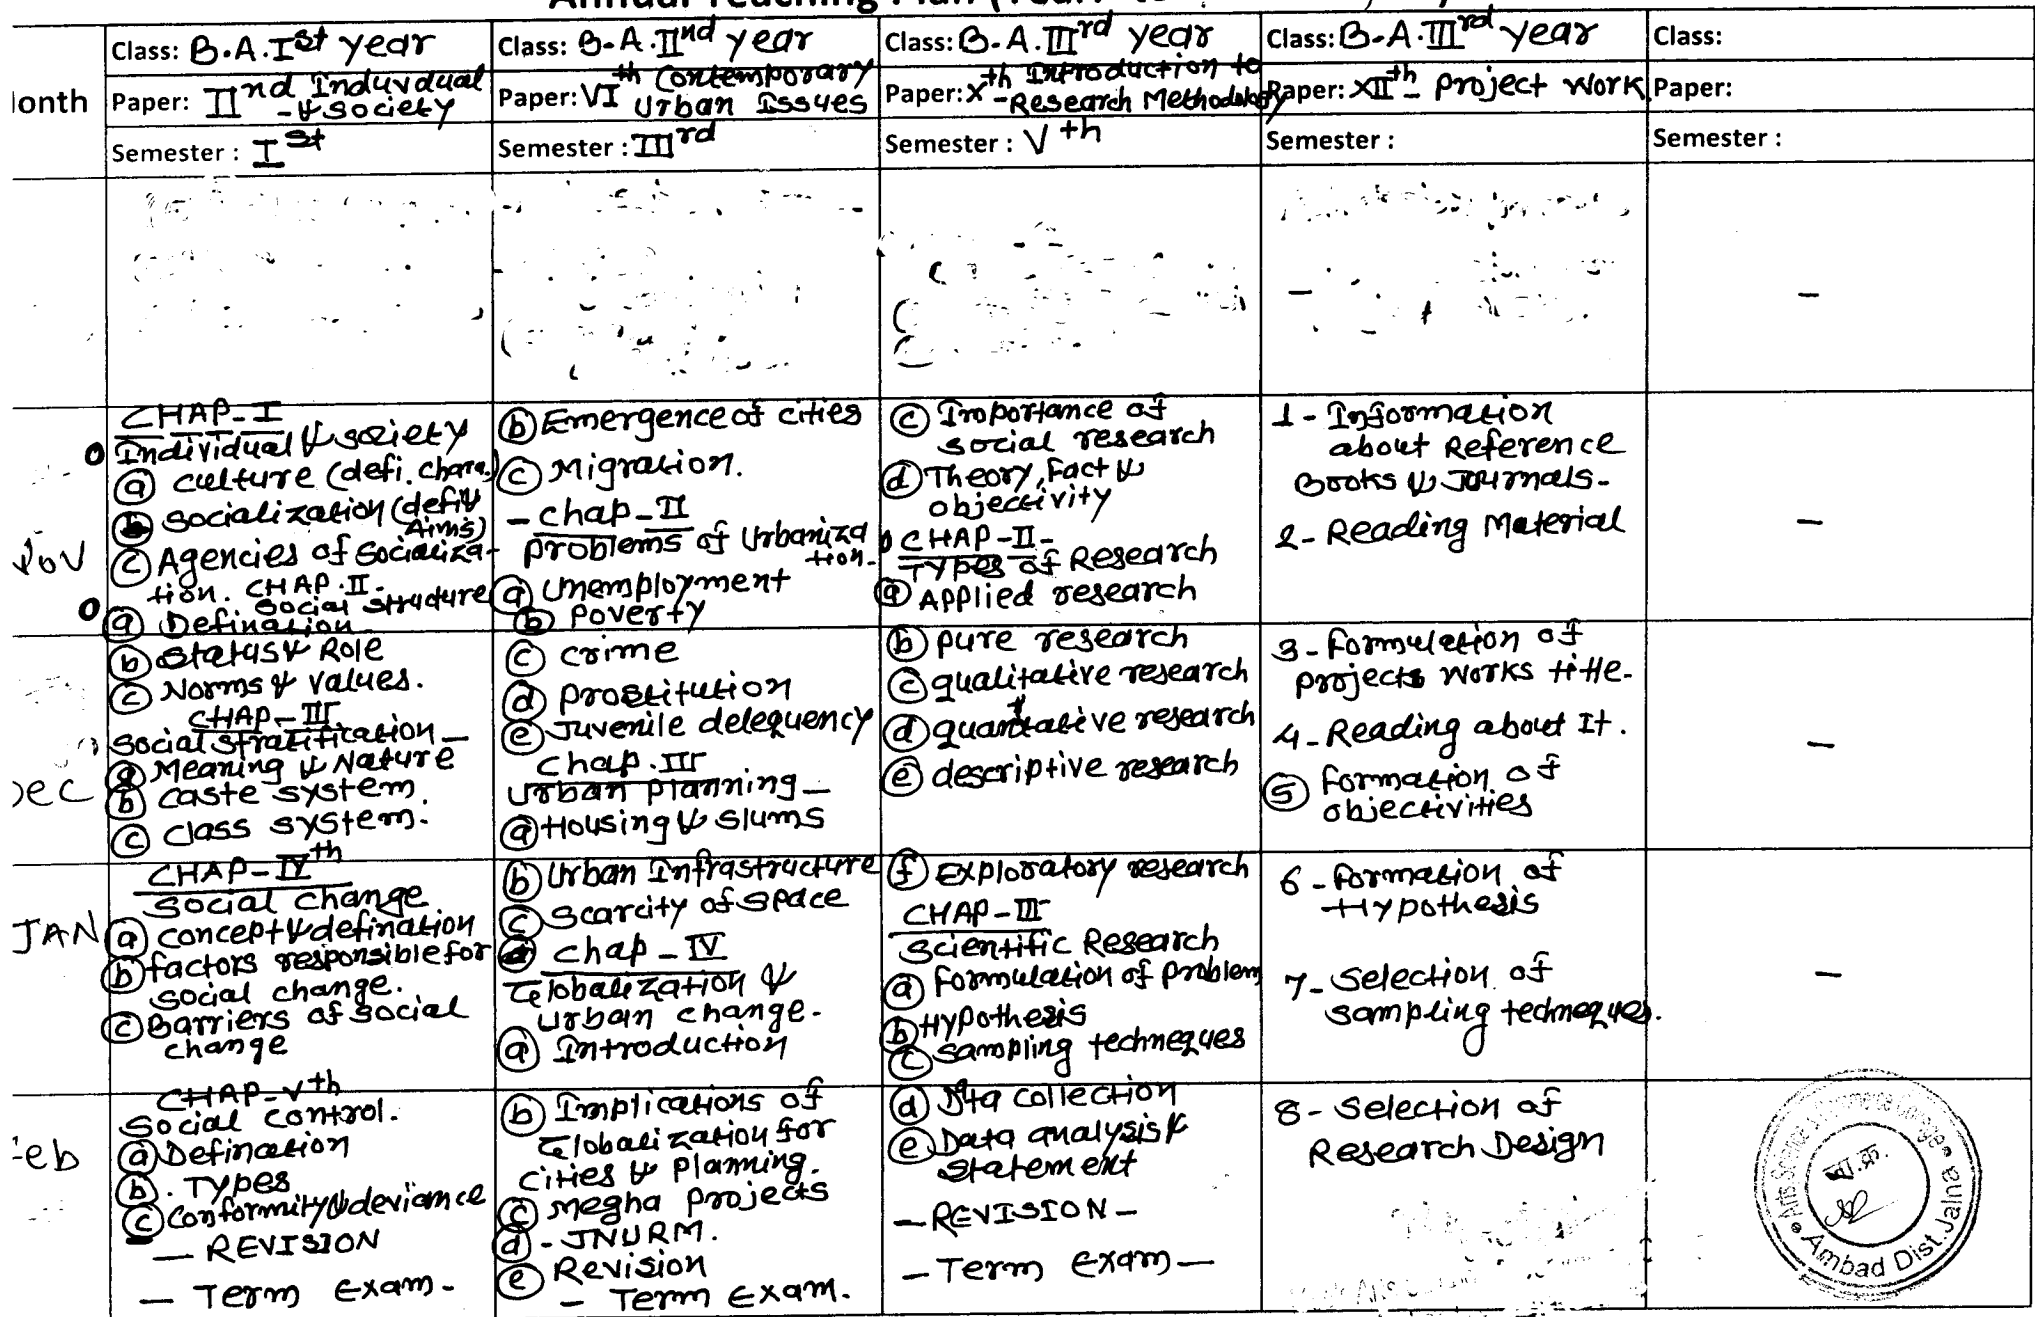 Annual Teaching Plan (Year:
Month
Class: B.A. Ist year
Paper: IInd Induvdual
- & society
Semester : Ist
Class: B.A. IInd year
Paper: VIth Contemporary
Urban Issues
Semester : IIIrd
Class: B.A. IIIrd year
Paper: Xth Introduction to
-Research Methodology
Semester : Vth
Class: B.A. IIIrd year
Paper: XIIth- project work
Semester :
Class:
Paper:
Semester :
Nov
CHAP-I
Individual & society
(a) culture (defi. chara.)
(b) socialization (defi &
Aims)
(c) Agencies of socializa-
tion. CHAP.II-
social structure
(a) Defination
(b) Emergence of cities
(c) Migration.
- chap-II
problems of Urbaniza
tion-
(a) unemployment
(b) poverty
(c) Importance of
social research
(d) Theory, Fact &
objectivity
CHAP-II-
Types of Research
(a) Applied research
1- Information
about Reference
Books & Journals-
2- Reading Material
Dec
(b) status & Role
(c) Norms & values.
CHAP-III
social stratification-
(a) Meaning & Nature
(b) caste system
(c) class system.
(c) crime
(d) prostitution
(e) Juvenile delequency
chap.III
urban planning-
(a) Housing & slums
(b) pure research
(c) qualitative research
(d) quantative research
(e) descriptive research
3- Formulation of
projects works title-
4- Reading about It.
(5) formation of
objectivities
JAN
CHAP-IVth
social change
(a) concept & defination
(b) factors responsible for
social change.
(c) Barriers of social
change
(b) Urban Infrastructure
(c) scarcity of space
chap-IV
Globalization &
urban change-
(a) Introduction
(f) Exploratory research
CHAP-III
scientific Research
(a) Formulation of problem
(b) Hypothesis
(c) sampling techneques
6- Formation of
Hypothesis
7- Selection of
sampling techneques.
Feb
CHAP-Vth
Social control.
(a) Defination
(b). Types
(c) conformity & deviance
- REVISION
- Term Exam-
(b) Implications of
Globalization for
cities & planning.
(c) megha projects
(d)- JNURM.
(e) Revision
- Term Exam.
(d) collection
(e) Data analysis &
statement
- REVISION-
- Term Exam-
8- selection of
Research Design
Arts Science & Commerce College
Ambad Dist. Jalna